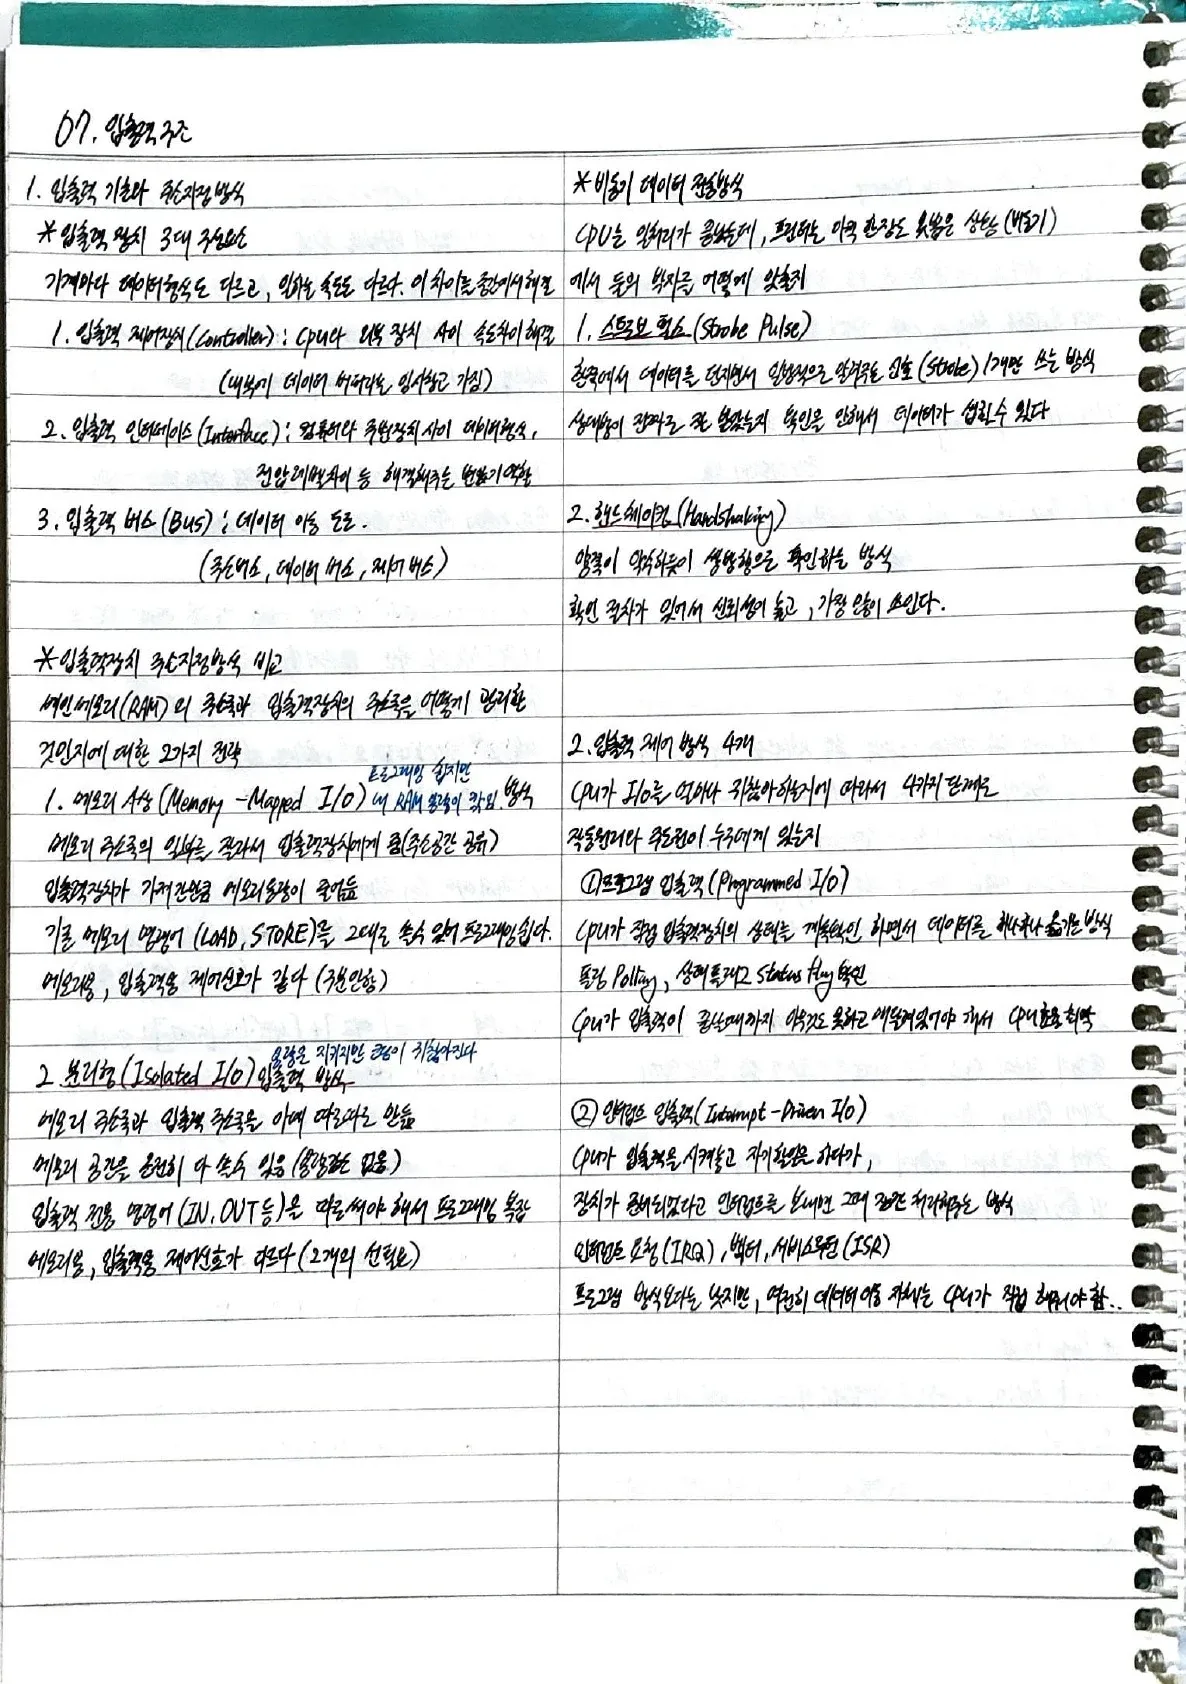 07. 입출력 구조
1. 입출력 기초와 주소지정방식
* 입출력 장치 3대 구성요소
기계마다 데이터형식도 다르고, 일하는 속도도 다르다. 이 차이를 중간에서 해결
1. 입출력 제어장치(Controller) : CPU와 외부 장치 사이 속도차이 해결
(내부에 데이터 버퍼라는 임시창고 가짐)
2. 입출력 인터페이스(Interface) : 컴퓨터와 주변장치 사이 데이터형식,
전압레벨차이 등 해결해주는 번역기 역할
3. 입출력 버스(Bus) : 데이터 이동 도로.
(주소버스, 데이터 버스, 제어 버스)
* 입출력장치 주소지정방식 비교
메인메모리(RAM)의 주소록과 입출력장치의 주소록을 어떻게 관리할
것인지에 대한 2가지 전략
프로그래밍 쉽지만
1. 메모리 사상(Memory-Mapped I/O) 내 RAM 용량이 깎임. 방식
메모리 주소록의 일부를 잘라서 입출력장치에게 줌(주소공간 공유)
입출력장치가 가져간만큼 메모리용량이 줄어듦
기존 메모리 명령어(LOAD, STORE)를 그대로 쓸수 있어 프로그래밍쉽다.
메모리용, 입출력용 제어신호가 같다(구분안함)
용량은 지키지만 코딩이 귀찮아진다
2. 분리형(Isolated I/O) 입출력 방식
메모리 주소록과 입출력 주소록을 아예 따로따로 만듦
메모리 공간을 온전히 다 쓸수 있음(용량감소 없음)
입출력 전용 명령어(IN, OUT등)을 따로써야 해서 프로그래밍 복잡
메모리용, 입출력용 제어신호가 다르다(2개의 선필요)
* 비동기 데이터 전송방식
CPU는 일처리가 끝났는데, 프린터는 아직 한장도 못뽑은 상황(비동기)
에서 둘의 박자를 어떻게 맞출지
1. 스트로브 펄스(Strobe Pulse)
한쪽에서 데이터를 던지면서 일방적으로 알려주는 신호(Strobe) 1개만 쓰는 방식
상대방이 진짜로 잘 받았는지 확인을 안해서 데이터가 씹힐수 있다
2. 핸드셰이킹(Handshaking)
양쪽이 악수하듯이 쌍방향으로 확인하는 방식
확인 절차가 있어서 신뢰성이 높고, 가장 많이 쓰인다.
2. 입출력 제어 방식 4개
CPU가 I/O를 얼마나 귀찮아하는지에 따라서 4가지 단계로
작동원리와 주도권이 누구에게 있는지
① 프로그램 입출력(Programmed I/O)
CPU가 직접 입출력장치의 상태를 계속확인 하면서 데이터를 하나하나 옮기는 방식
폴링 Polling, 상태플래그 Status flag 확인
CPU가 입출력이 끝날때까지 아무것도 못하고 매달려있어야 해서 CPU효율 최악
② 인터럽트 입출력(Interrupt-Driven I/O)
CPU가 입출력을 시켜놓고 자기할일을 하다가,
장치가 준비되었다고 인터럽트를 보내면 그때 잠깐 처리해주는 방식
인터럽트 요청(IRQ), 벡터, 서비스루틴(ISR)
프로그램 방식보다는 낫지만, 여전히 데이터 이동 자체는 CPU가 직접 해줘야 함..